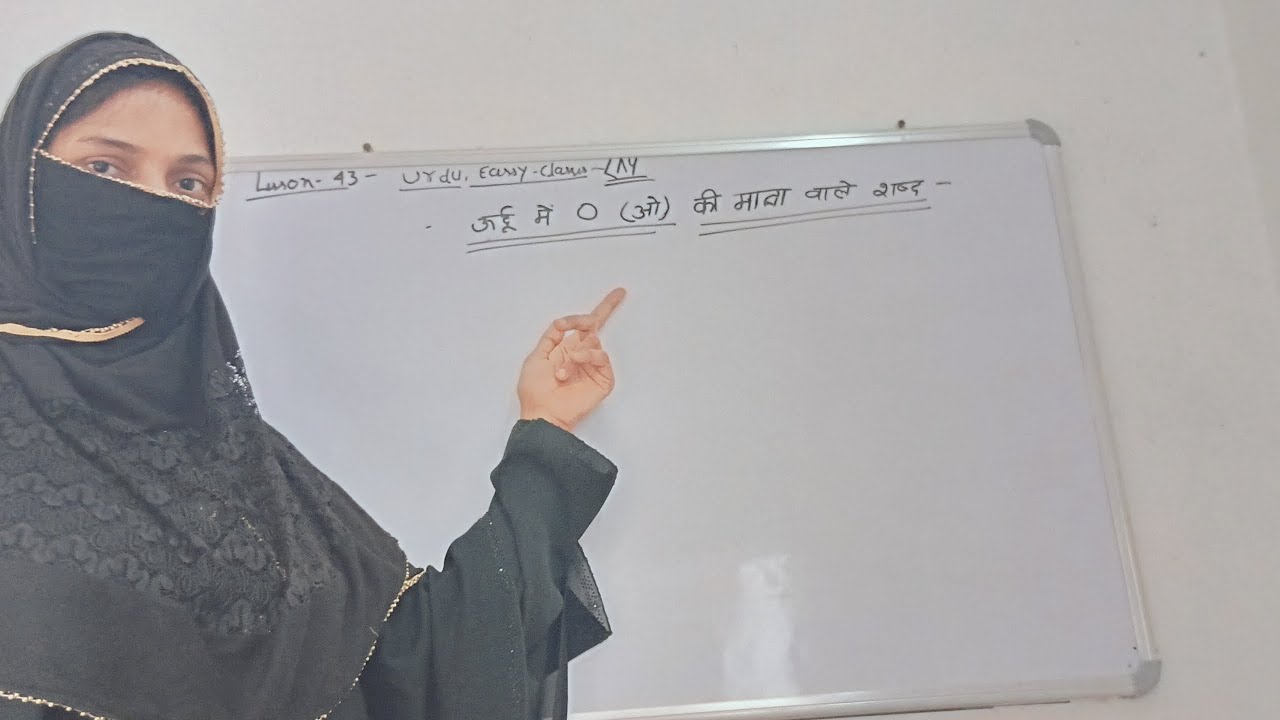 Lusson - 43 - Urdu. Easy - Class - LAY
उर्दू में O (ओ) की मात्रा वाले शब्द -